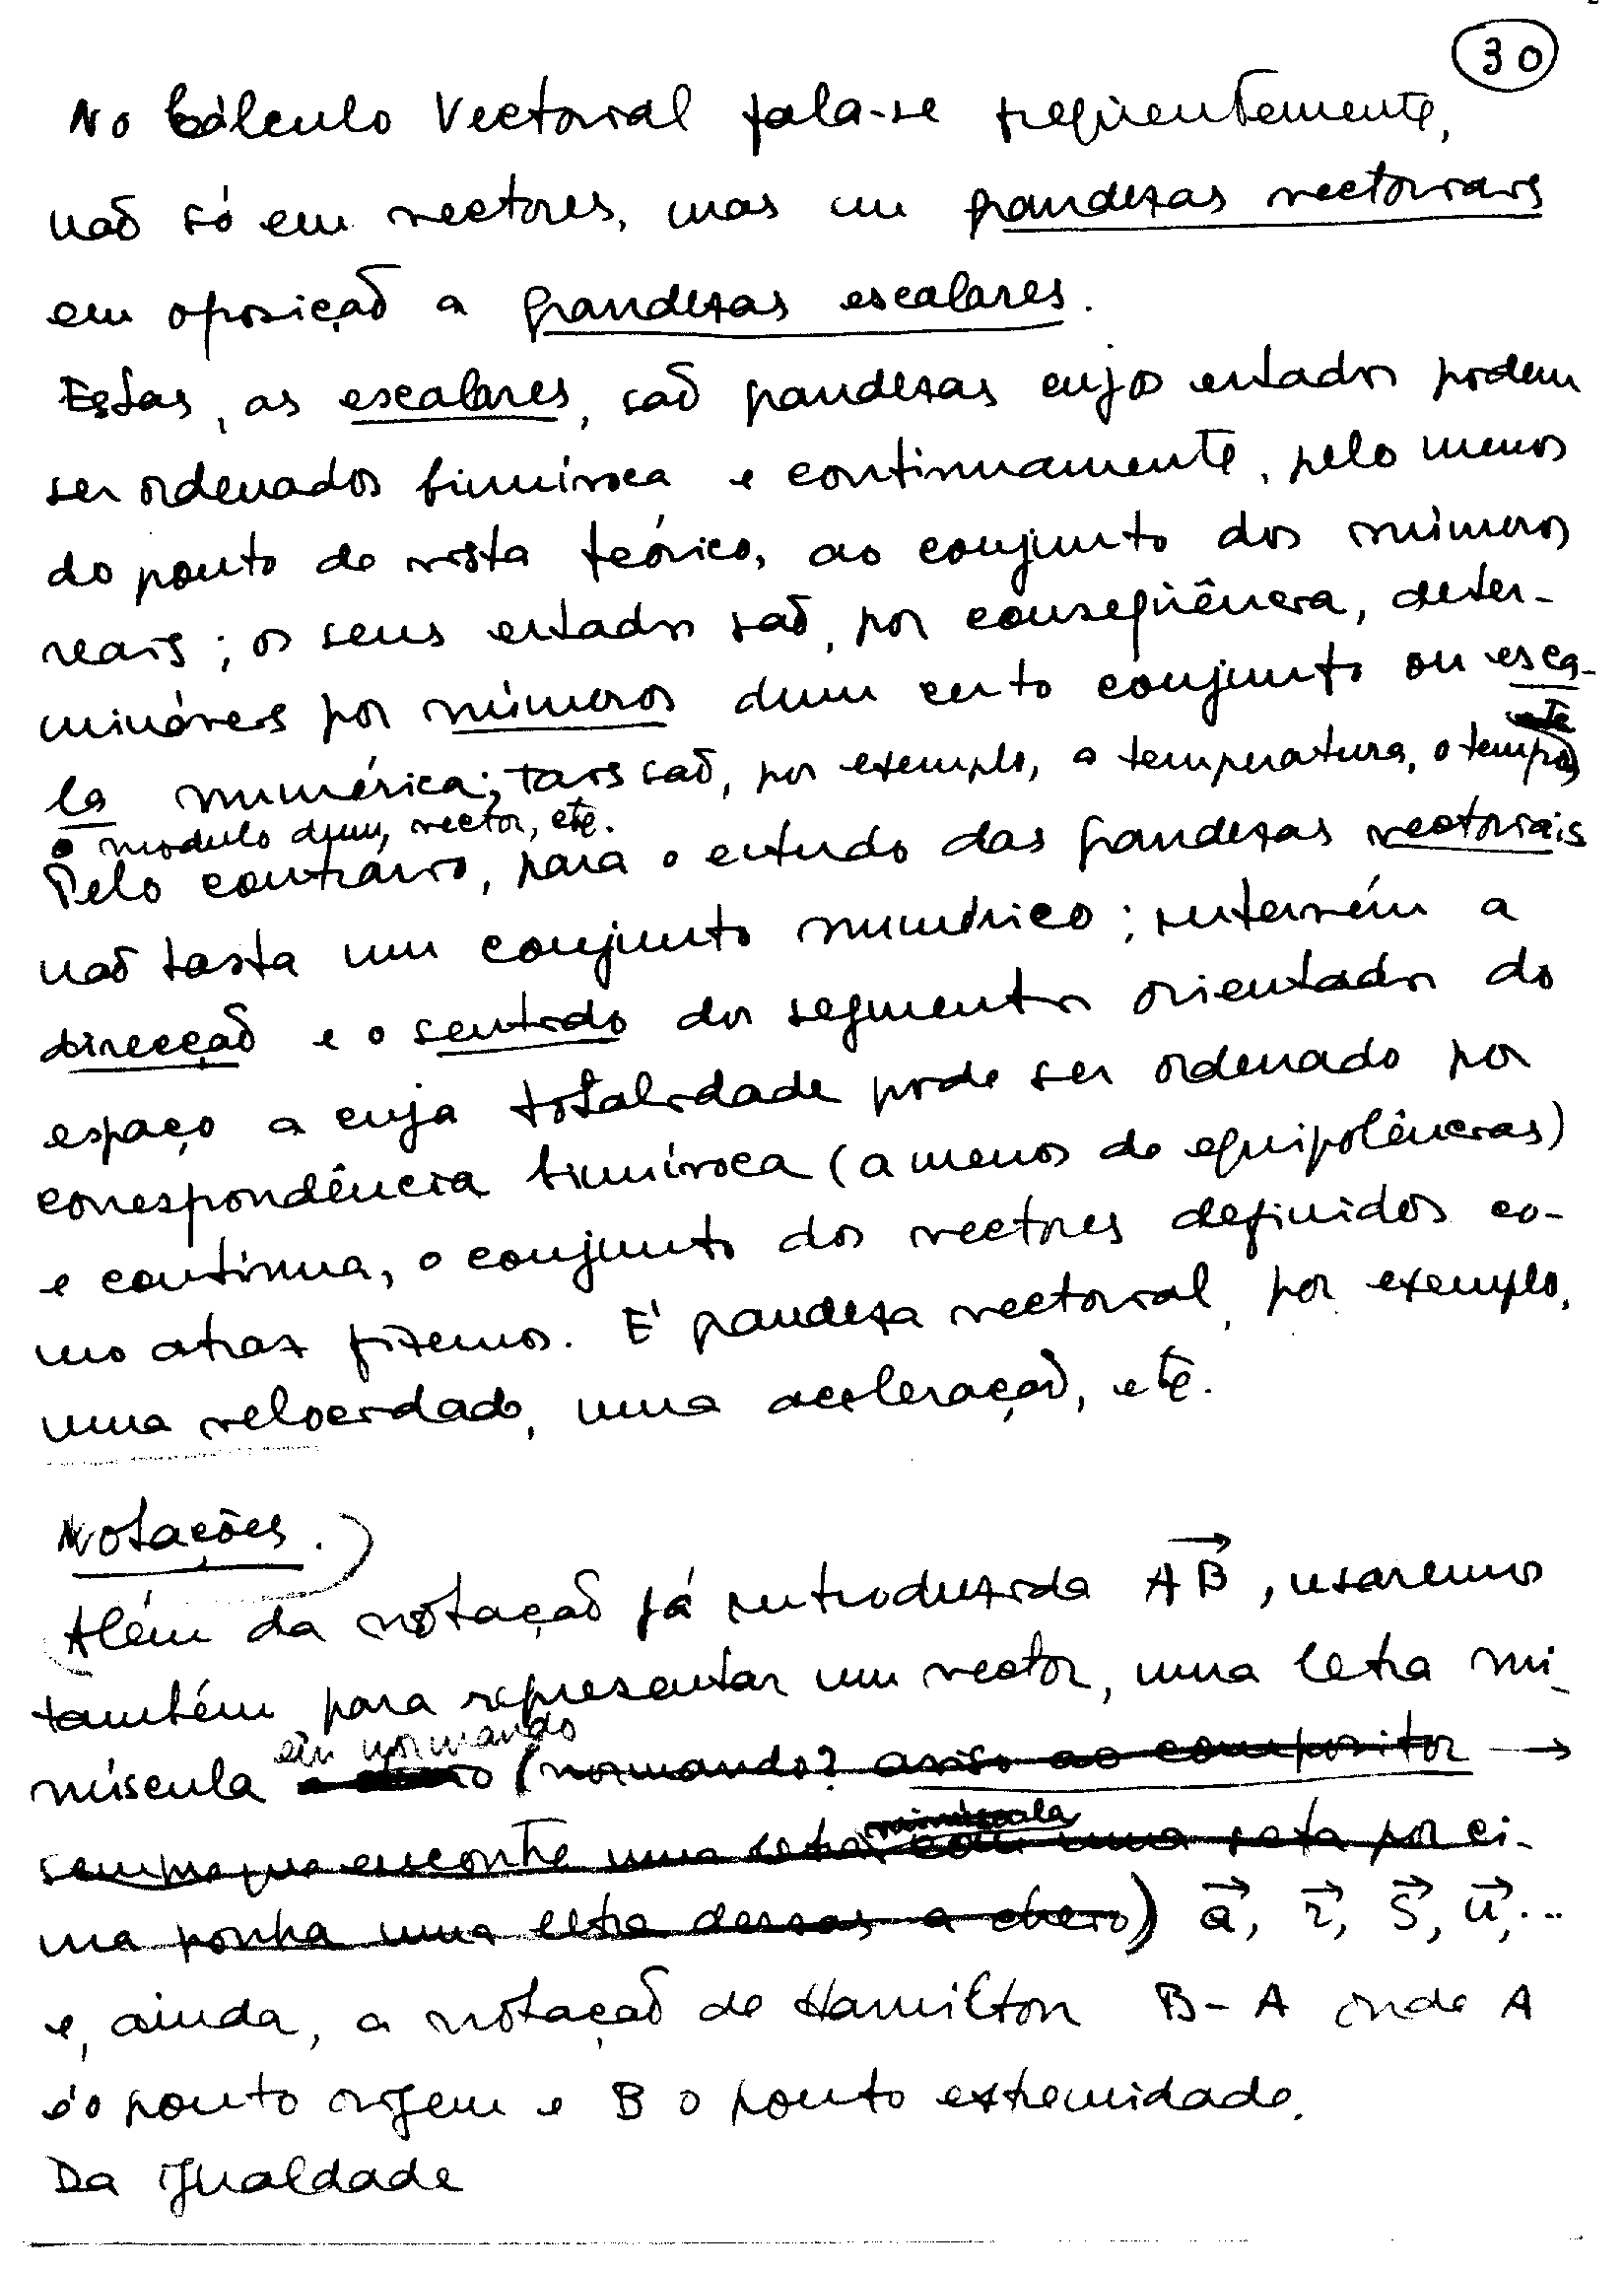 30
No Cálculo Vectorial fala-se freqüentemente,
não só em vectores, mas em grandezas vectoriais
em oposição a grandezas escalares.
Estas, as escalares, são grandezas cujos estados podem
ser ordenados biunívoca e continuamente, pelo menos
do ponto de vista teórico, ao conjunto dos números
reais; os seus estados são, por conseqüência, deter-
mináveis por números dum certo conjunto ou esca-
la numérica; tais são, por exemplo, a temperatura, o tempo,
o modulo dum, vector, etc.
Pelo contrário, para o estudo das grandezas vectoriais
não basta um conjunto numérico; intervém a
direcção e o sentido dos segmentos orientados do
espaço a cuja totalidade pode ser ordenado por
correspondência biunívoca (a menos de equipolências)
e contínua, o conjunto dos vectores definidos co-
mo atraz fizemos. É grandeza vectorial, por exemplo,
uma velocidade, uma aceleração, etc.
Notações.
Além da notação já introduzida AB, usaremos
também para representar um vector, uma letra mi-
núscula em normando (normando? aviso ao compositor →
sempre que encontre uma letra minúscula com uma seta por ci-
ma ponha uma letra dessas a cheio) a⃗, r⃗, s⃗, u⃗,...
e, ainda, a notação de Hamilton B-A onde A
é o ponto origem e B o ponto extremidade.
Da igualdade